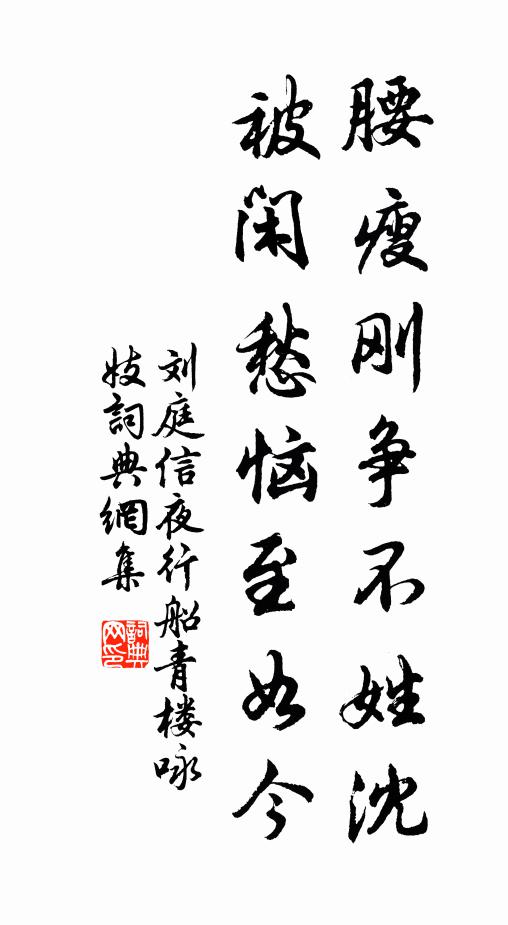 腰瘦刚争不姓沈
被闲愁恼至如今
刘庭信夜行船青楼咏
妓詞典網集
詞典网印